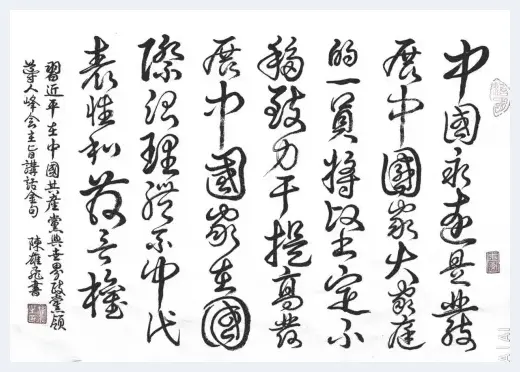 中國永遠是發
展中國家大家庭
的一員將堅定不
移致力于提高發
展中國家在國
際治理體系中代
表性和發言權
習近平在中國共産黨與世界政黨領
導人峰會主旨講話金句 陳雄飛書